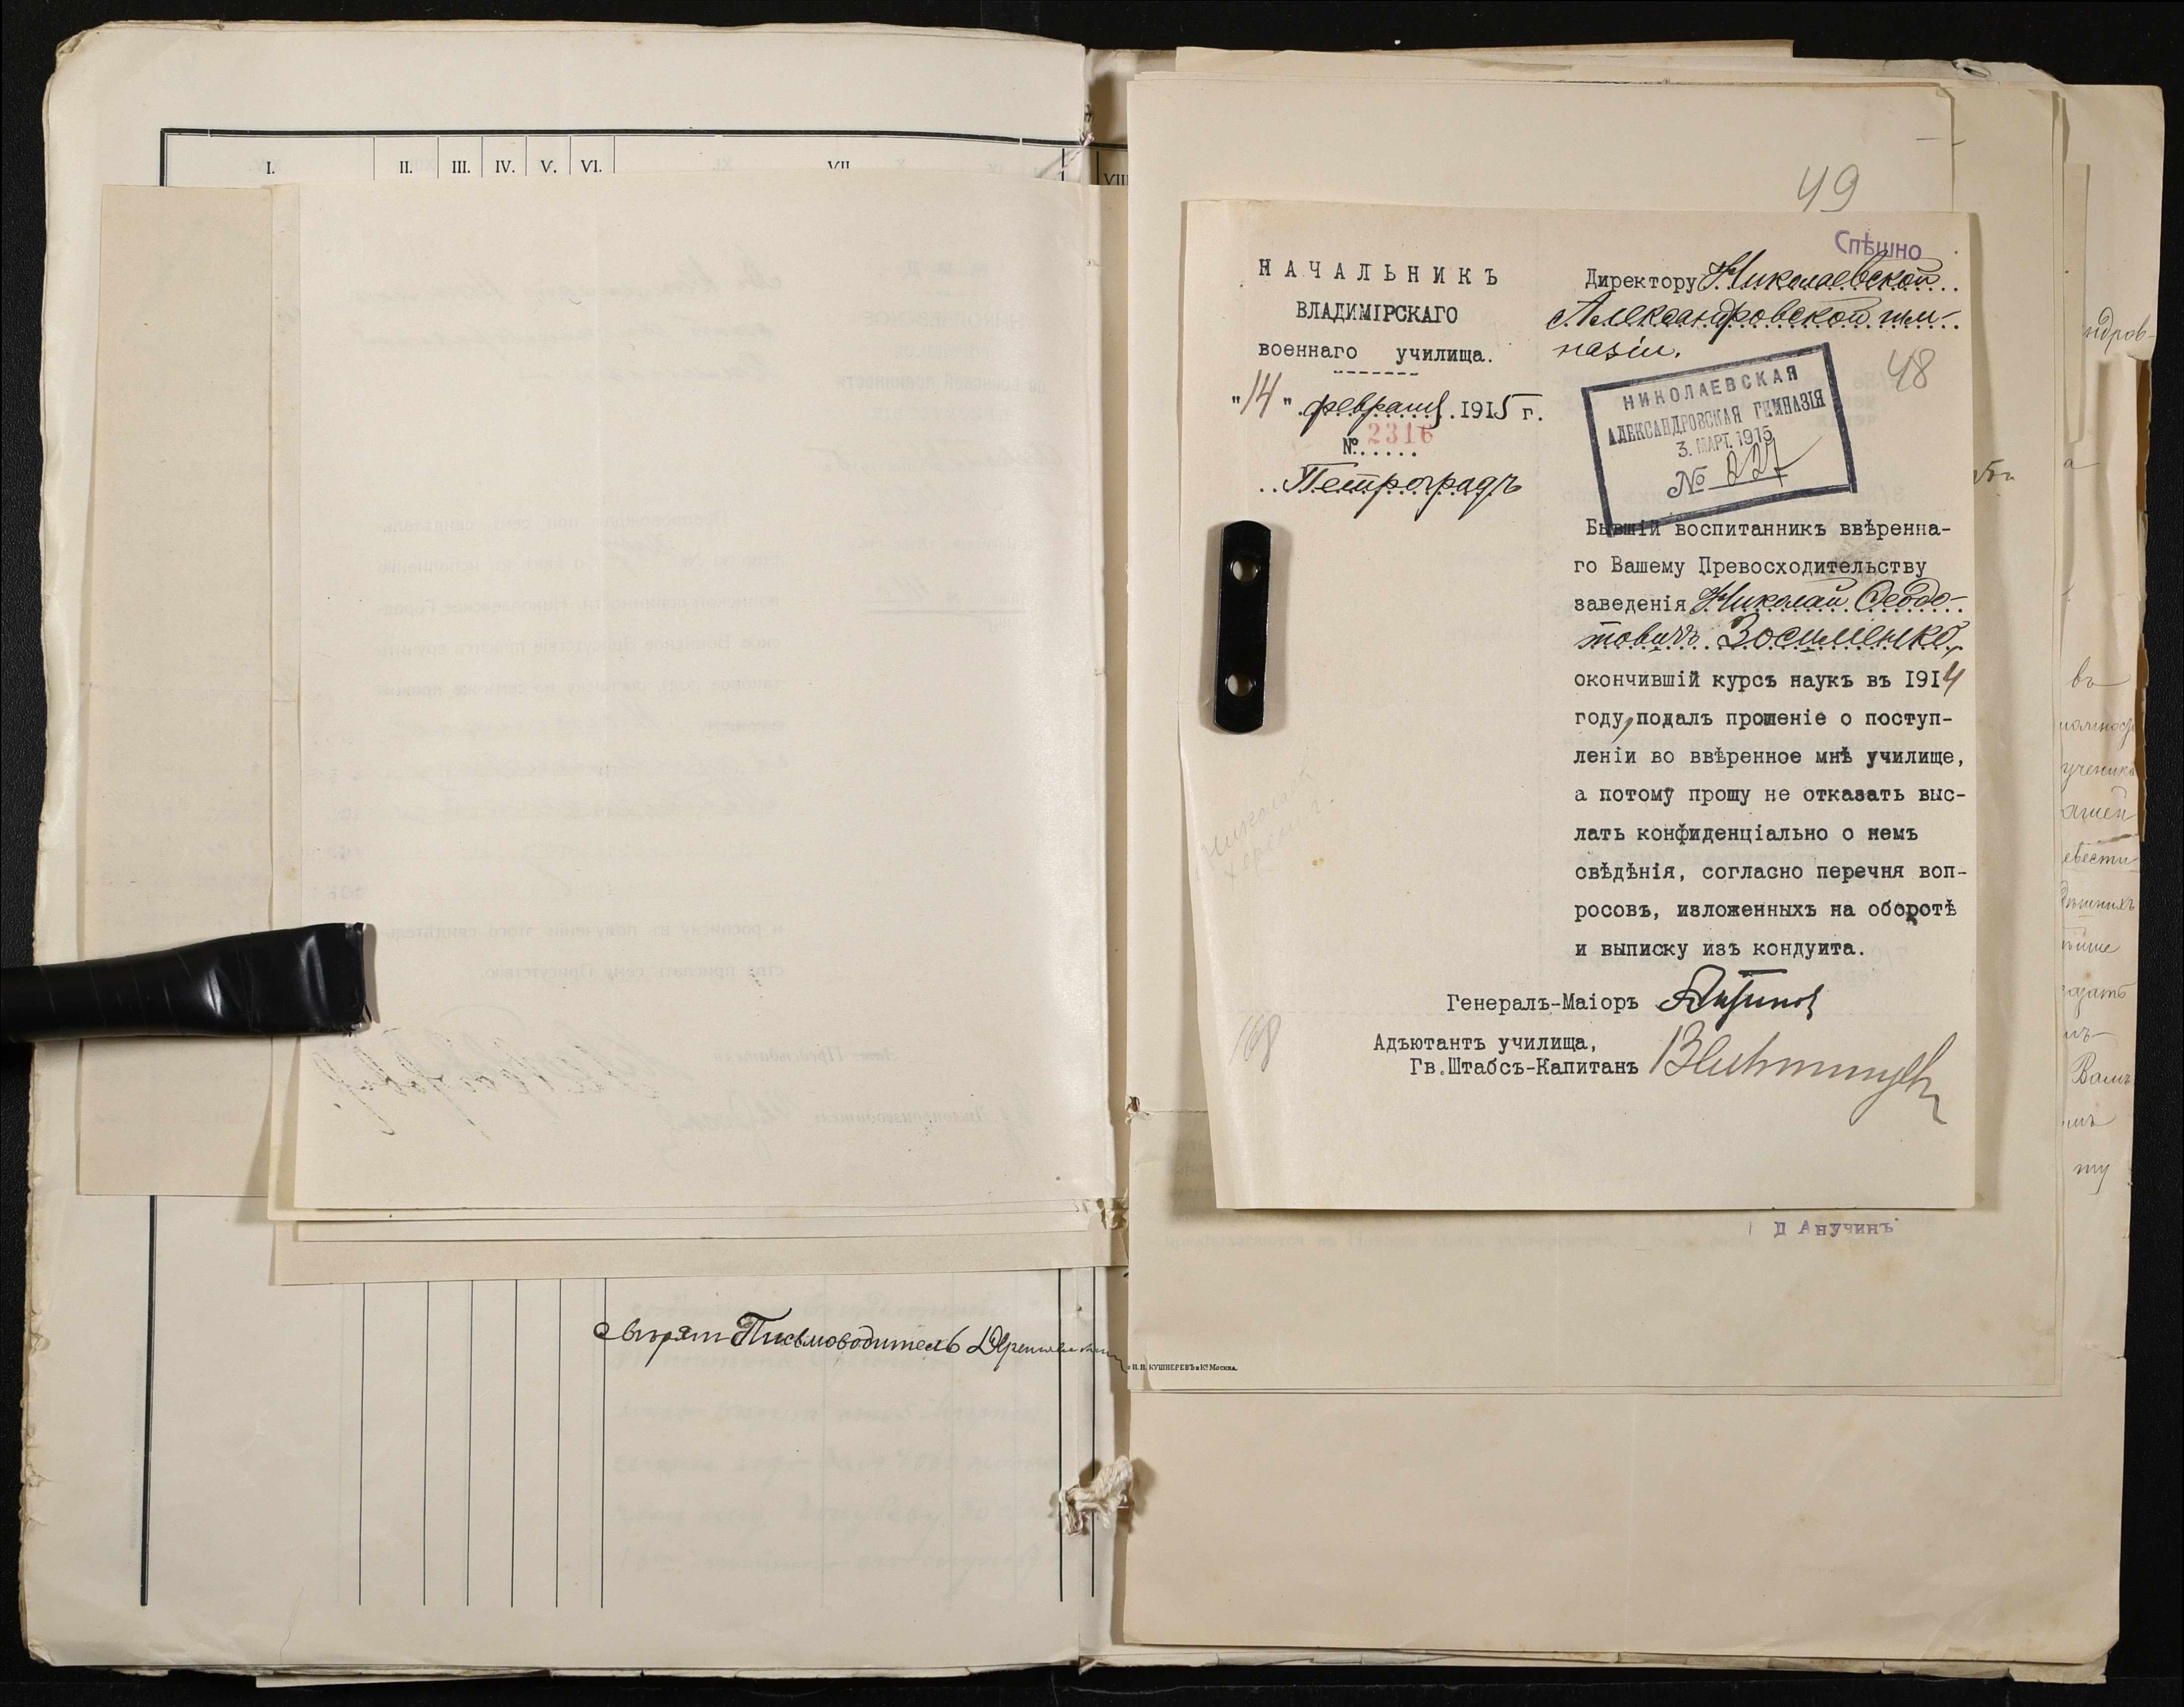 I. II. III. IV. V. VI. VII
VIII
свѣрялъ Письмоводитель
49
Спѣшно
НАЧАЛЬНИКЪ
ВЛАДИМІРСКАГО
военнаго училища.
"14" февраля 1915 г.
№ 2316
Петроградъ
Директору Николаевской
Александровской гим-
назіи.
48
НИКОЛАЕВСКАЯ
АЛЕКСАНДРОВСКАЯ ГИМНАЗІЯ
3. МАРТ. 1915
№ 221
Бывшій воспитанникъ ввѣренна-
го Вашему Превосходительству
заведенія Николай Ѳеодо-
товичъ Зосименко,
окончившій курсъ наукъ въ 1914
году, подалъ прошеніе о поступ-
леніи во ввѣренное мнѣ училище,
а потому прошу не отказать выс-
лать конфиденціально о немъ
свѣдѣнія, согласно перечня воп-
росовъ, изложенныхъ на оборотѣ
и выписку изъ кондуита.
Генералъ-Маіоръ
Адъютантъ училища,
Гв.Штабсъ-Капитанъ
168
Д Анучинъ
И. Н. КУШНЕРЕВЪ и К° Москва.
ндров-
а
въ
ученика
Вамъ
му